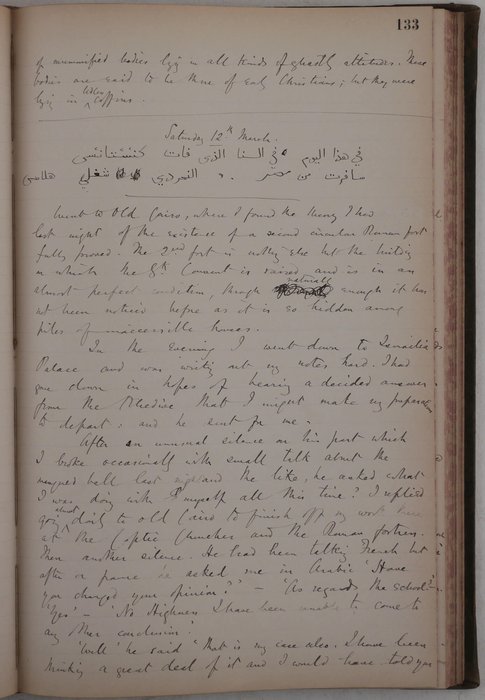 133
of mummified bodies lying in all kinds of ghastly attitudes. These
bodies are said to be those of Early Christians; but they were
lying in wooden coffins.
Saturday 12th March.
في هذا اليوم في السنا الذي فات
سافرت من مصر شغلي
Went to Old Cairo, where I found the theory I had
last night of the existence of a second circular Roman fort
fully proved. The 2nd fort is nothing else but the building
on which the Gk Convent is raised and is in an
almost perfect condition, though naturally enough it has
not been noticed before as it is so hidden among
piles of inaccessible houses.
In the Evening I went down to Ismailia
Palace and was writing out my notes hard. I had
gone down in hopes of hearing a decided answer
from the Khedive that I might make my preparations
to depart: and he sent for me.
After an unusual silence on his part which
I broke occasionally with small talk about the
ball last night and the like, he asked what
I was doing with myself all this time? I replied
going daily to old Cairo to finish off my work there
at the Coptic Churches and the Roman fortress.
Then another silence. He had been talking French but
after a pause he asked me in Arabic 'Have
you changed your opinion?' - 'As regards the school? -
'Yes' - 'No Highness I have been unable to come to
any other conclusion.'
'Well' he said 'that is my case also. I have been
thinking a great deal of it and I would have told you